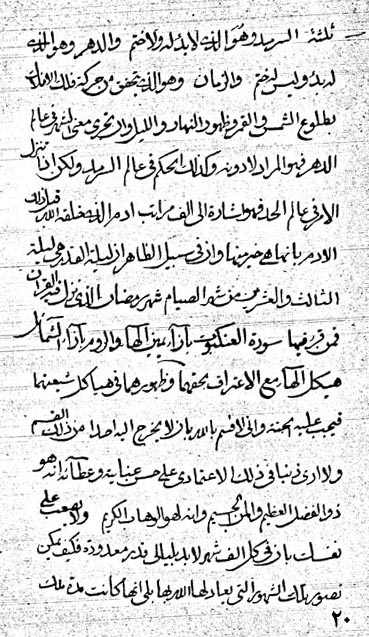 ثلثة السرمد وهو الذي لا بدء له ولا ختم والدهر وهو الذي
له بدء وليس له ختم والزمان وهو الذي يتحقق من حركة فلك الافلاك
بطلوع الشمس والقمر وظهور النهار والليل وان تجري معنى الشهر في عالم
الدهر فهو المراد لا دونه وكذلك الحكم في عالم السرمد ولكن اذا تنزل
الامر في عالم الحد فهو اشارة الى الف مراتب ادم الذي خلقه الله قبل ذلك
الادم بانها هي خير منها وان في سبيل الظاهر ان ليلة القدر هي ليلة
الثالث والعشرين من شهر الصيام شهر رمضان الذي نزل فيه القران
فمن قرء فيها سورة العنكبوت بازاء يمين الهاء والروم بازاء الشمائل
هيكل الهاء مع الاعتراف بحقهما وظهورهما في هياكل شيعتهما
فيجب عليه الجنة واني لاقسم بالله بان لا يخرج اليه احدا من ذلك القسم
ولا ارى ذنبا في ذلك لاعتمادي على حسن عنايته وعطائه انه هو
ذو الفضل العظيم والمن الجسيم وانه لهو الوهاب الكريم ولا يصعب على
نفسك بان في كل الف شهر لابد بليالي قدر معدودة فكيف يمكن
تصور تلك الشهور التي يعادلها الله بها بلى انها كانت مدة ملك
٢٠